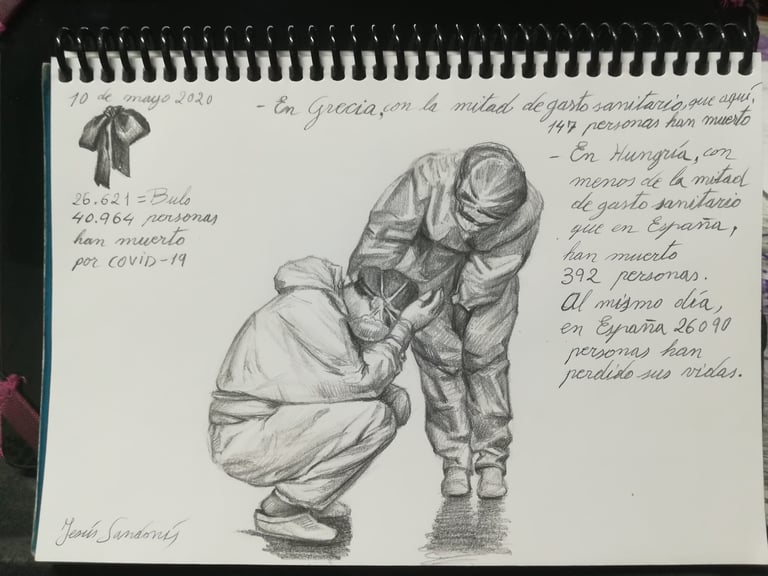 10 de mayo 2020
26.621 = Bulo
40.964 personas
han muerto
por COVID-19
- En Grecia, con la mitad de gasto sanitario, que aquí,
147 personas han muerto
- En Hungría, con
menos de la mitad
de gasto sanitario
que en España,
han muerto
392 personas.
Al mismo día,
en España 26090
personas han
perdido sus vidas.
Jesús Sandonís